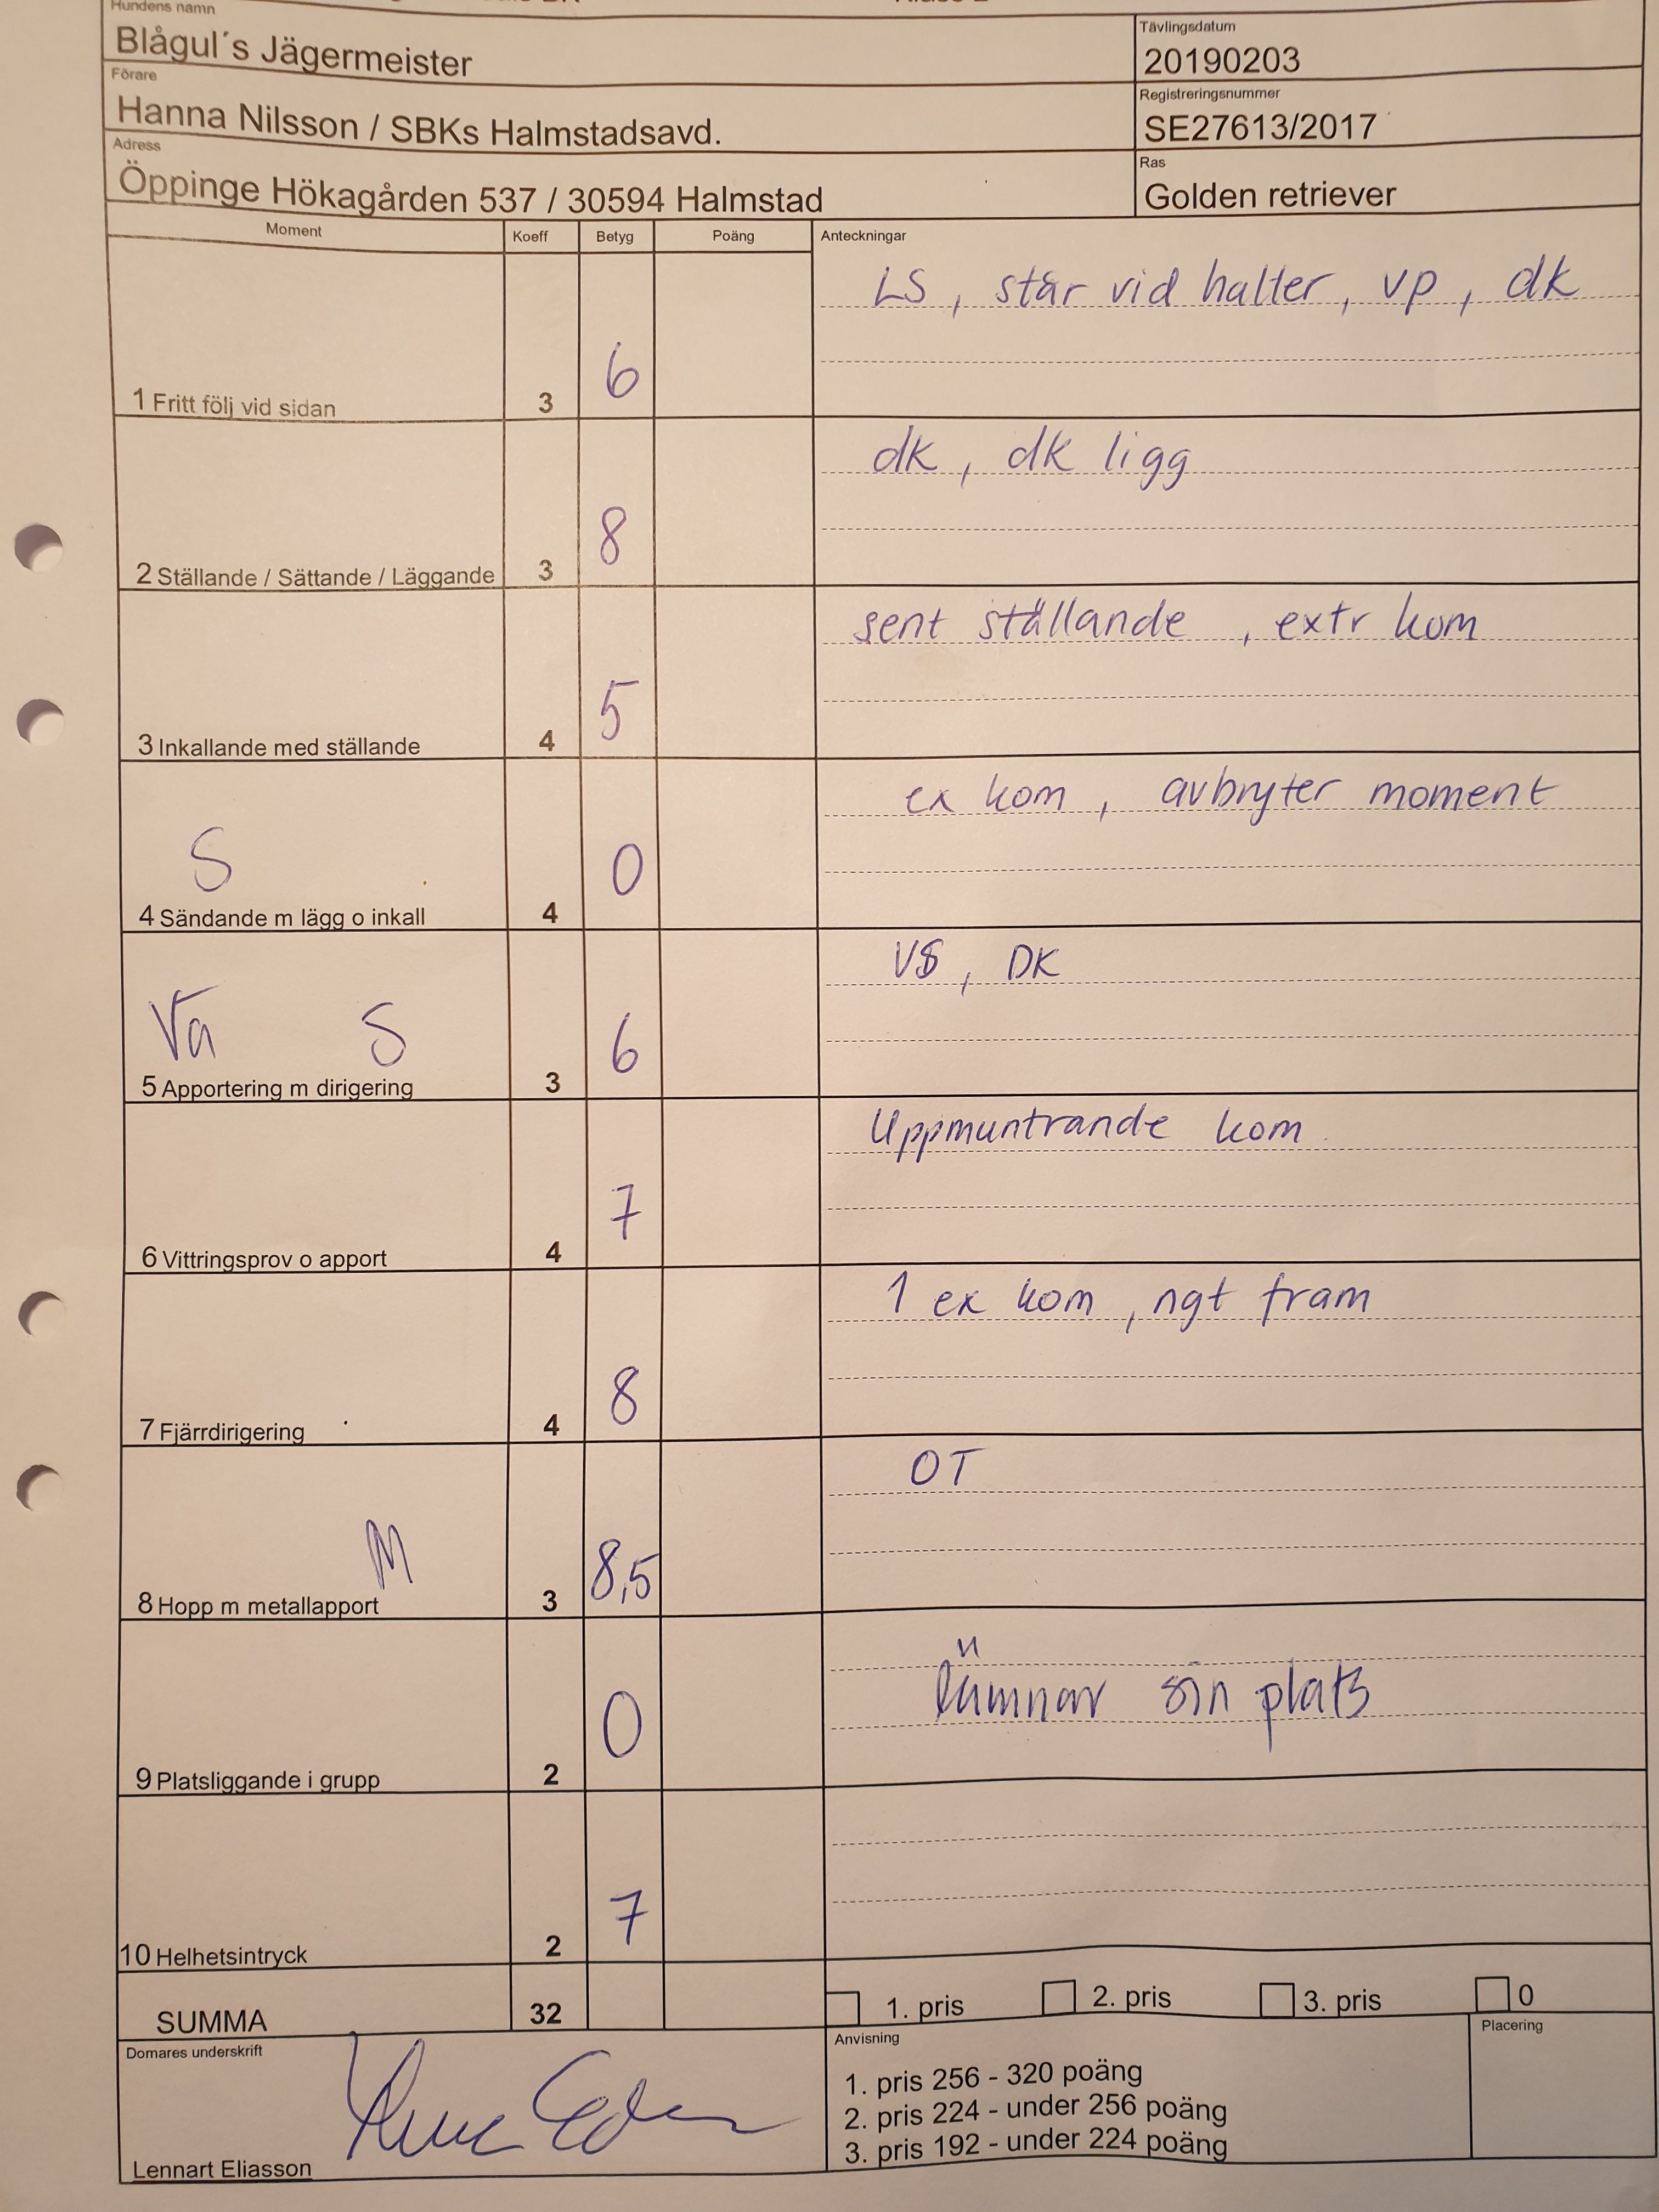 Hundens namn
Blågul´s Jägermeister
Tävlingsdatum
20190203
Förare
Hanna Nilsson / SBKs Halmstadsavd.
Registreringsnummer
SE27613/2017
Adress
Öppinge Hökagården 537 / 30594 Halmstad
Ras
Golden retriever
Moment Koeff Betyg Poäng Anteckningar
LS, står vid halter, vp, dk
1 Fritt följ vid sidan 3 6
dk, dk ligg
2 Ställande / Sättande / Läggande 3 8
sent ställande, extr kom
3 Inkallande med ställande 4 5
ex kom, avbryter moment
S
4 Sändande m lägg o inkall 4 0
VS, DK
Va S
5 Apportering m dirigering 3 6
Uppmuntrande kom
6 Vittringsprov o apport 4 7
1 ex kom, ngt fram
7 Fjärrdirigering 4 8
OT
M
8 Hopp m metallapport 3 8,5
Lämnar sin plats
9 Platsliggande i grupp 2 0
10 Helhetsintryck 2 7
SUMMA 32 1. pris 2. pris 3. pris 0
Domares underskrift
Anvisning
Placering
1. pris 256 - 320 poäng
2. pris 224 - under 256 poäng
3. pris 192 - under 224 poäng
Lennart Eliasson